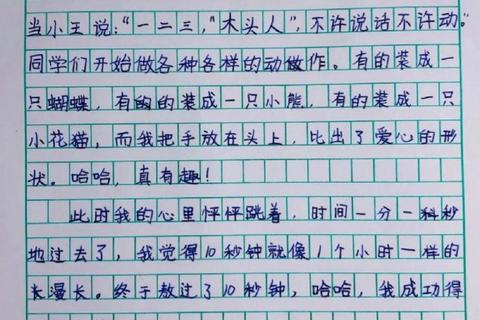 当小王说：“一二三，“木头人”，不许说话不许动。”
同学们开始做各种各样的动做作。有的装成一
只蝴蝶，有的的装成一只小熊，有的装成一只
小花猫，而我把手放在头上，比出了爱心的形
状。哈哈，真有趣！
此时我的心里怦怦跳着，时间一分一科秒
地过去了，我觉得10秒钟就像1个小时一样的
长漫长。终于熬过了10秒钟，哈哈，我成功得